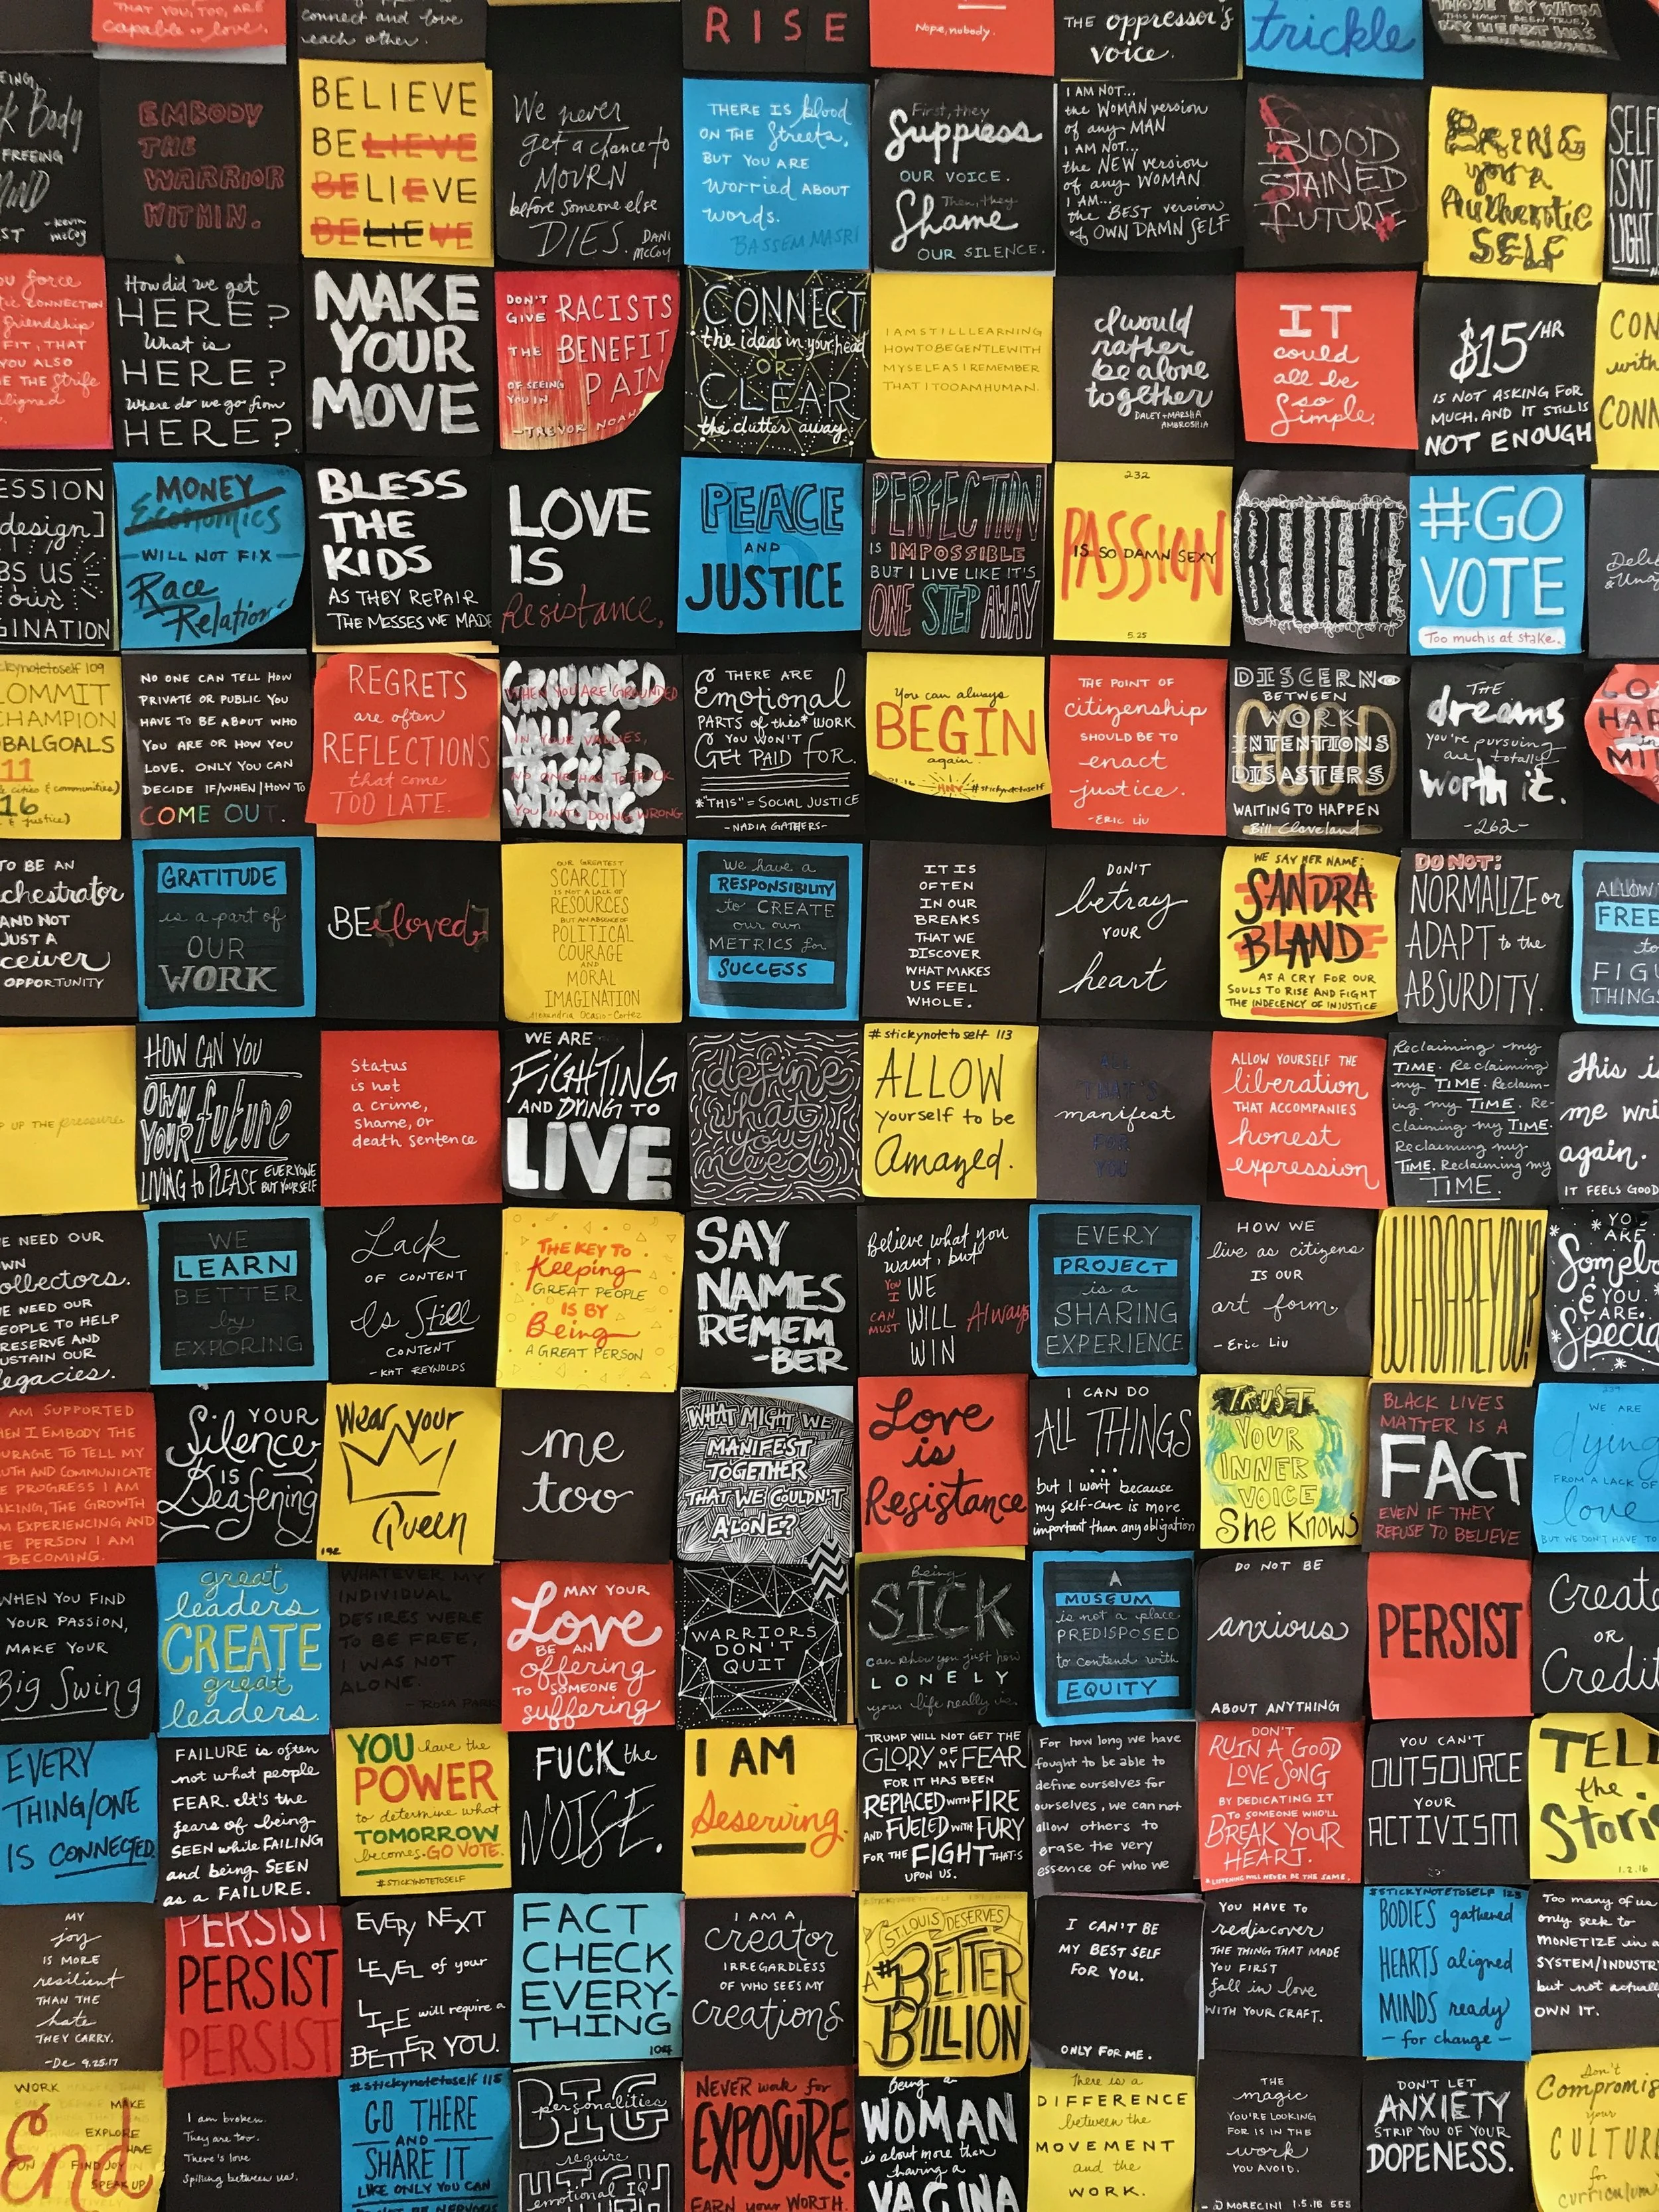 THAT YOU, TOO, ARE
capable of love.
connect and love
each other.
RISE
Nope, nobody.
THE oppressor's
voice.
trickle
THOSE BY WHOM
THIS HASN'T BEEN TRUE,
MY HEART HAS
Body
FREEING
MIND
- KEVIN
McCoy
EMBODY
THE
WARRIOR
WITHIN.
BELIEVE
BELIEVE
BELIEVE
BELIEVE
We never
get a chance to
MOURN
before someone else
DIES.
DANI
McCoy
THERE IS blood
ON THE Streets,
BUT YOU ARE
worried ABOUT
words.
BASSEM MASRI
First, they
Suppress
OUR VOICE.
Then, they
Shame
OUR SILENCE.
I AM NOT...
the WOMAN version
of any MAN
I AM NOT...
the NEW version
of any WOMAN
I AM...
the BEST version
of OWN DAMN SELF
BLOOD
STAINED
FUTURE
BRING
your
Authentic
SELF
SELF
ISNT
LIGHT
ou force
CONNECTION
friendship
FIT, THAT
YOU ALSO
THE Strife
aligned
How did we get
HERE?
What is
HERE?
Where do we go from
HERE?
MAKE
YOUR
MOVE
DON'T
GIVE RACISTS
THE BENEFIT
OF SEEING
YOU IN PAIN
-TREVOR NOAH
CONNECT
the ideas in your head
OR
CLEAR
the clutter away.
I AM STILL LEARNING
HOW TO BE GENTLE WITH
MYSELF AS I REMEMBER
THAT I TOO AM HUMAN.
I would
rather
be alone
together
DALEY + MARSHA
AMBROSHIA
IT
could
all be
so
Simple.
$15/HR
IS NOT ASKING FOR
MUCH. AND IT STILL IS
NOT ENOUGH
CON
with
CONN
ESSION
design]
BS US
our
GINATION
MONEY
Economics
WILL NOT FIX
Race
Relation
BLESS
THE
KIDS
AS THEY REPAIR
THE MESSES WE MADE
LOVE
IS
Resistance.
PEACE
AND
JUSTICE
PERFECTION
IS IMPOSSIBLE
BUT I LIVE LIKE IT'S
ONE STEP AWAY
232
PASSION
IS SO DAMN SEXY
5.25
BELIEVE
#GO
VOTE
Too much is at stake.
stickynotetoself 109
COMMIT
CHAMPION
OBALGOALS
11
cities & communities)
16
& justice)
NO ONE CAN TELL HOW
PRIVATE OR PUBLIC YOU
HAVE TO BE ABOUT WHO
YOU ARE OR HOW YOU
LOVE. ONLY YOU CAN
DECIDE IF/WHEN/HOW TO
COME OUT.
REGRETS
are often
REFLECTIONS
that come
TOO LATE.
GROUNDED
WHEN YOU ARE GROUNDED
VALUES
IN YOUR VALUES,
TRICKED
NO ONE HAS TO TRICK
WRONG
YOU INTO DOING WRONG
THERE ARE
Emotional
PARTS of this* WORK
YOU WON'T
GET PAID FOR.
*"THIS" = SOCIAL JUSTICE
-NADIA GATHERS-
You can always
BEGIN
again.
HNY #stickynotetoself
THE POINT OF
citizenship
SHOULD BE TO
enact
justice.
-ERIC LIU
DISCERN
BETWEEN
GOOD
WORK
INTENTIONS
DISASTERS
WAITING TO HAPPEN
Bill Cleveland
THE
dreams
you're pursuing
are totally
worth it.
-262-
TO BE AN
chestrator
AND NOT
JUST A
ceiver
OPPORTUNITY
GRATITUDE
is a part of
OUR
WORK
BE[loved]
OUR GREATEST
SCARCITY
IS NOT A LACK OF
RESOURCES
BUT AN ABSENCE OF
POLITICAL
COURAGE
AND
MORAL
IMAGINATION
Alexandria Ocasio-Cortez
We have a
RESPONSIBILITY
to CREATE
our own
METRICS for
SUCCESS
IT IS
OFTEN
IN OUR
BREAKS
THAT WE
DISCOVER
WHAT MAKES
US FEEL
WHOLE.
DON'T
betray
YOUR
heart
WE SAY HER NAME:
SANDRA
BLAND
AS A CRY FOR OUR
SOULS TO RISE AND FIGHT
THE INDECENCY OF INJUSTICE
DO NOT:
NORMALIZE or
ADAPT to the
ABSURDITY.
ALLOW
FREE
to
FIGU
THINGS
UP THE pressure.
HOW CAN YOU
OWN
YOUR future
LIVING to PLEASE EVERYONE
BUT YOURSELF
Status
is not
a crime,
shame, or
death sentence
WE ARE
FIGHTING
AND DYING TO
LIVE
define
what
you
need
#stickynotetoself 113
ALLOW
yourself to be
Amazed.
ALL
THAT'S
manifest
FOR
YOU
ALLOW YOURSELF THE
liberation
THAT ACCOMPANIES
honest
expression
Reclaiming my
TIME. Reclaiming
my TIME. Reclaim-
ing my TIME. Re-
claiming my TIME.
Reclaiming my
TIME. Reclaiming my
TIME.
This is
me wri
again.
IT FEELS GOOD
E NEED OUR
WN
ollectors.
E NEED OUR
EOPLE TO HELP
RESERVE AND
USTAIN OUR
egacies.
WE
LEARN
BETTER
by
EXPLORING
Lack
OF CONTENT
Is Still
CONTENT
- KAT REYNOLDS
THE KEY TO
Keeping
GREAT PEOPLE
IS BY
Being
A GREAT PERSON
SAY
NAMES
REMEM
-BER
Believe what you
want, but
YOU
I WE
CAN
MUST WILL Always
WIN
EVERY
PROJECT
is a
SHARING
EXPERIENCE
HOW WE
live as citizens
IS OUR
art form.
- Eric Liu
WHOAREYOU?
YOU
ARE
Someb
& YOU
ARE
Specia
AM SUPPORTED
EN I EMBODY THE
URAGE TO TELL MY
UTH AND COMMUNICATE
E PROGRESS I AM
KING, THE GROWTH
M EXPERIENCING AND
E PERSON I AM
BECOMING.
YOUR
Silence
IS
Deafening
Wear your
Queen
192
me
too
WHAT MIGHT WE
MANIFEST
TOGETHER
THAT WE COULDN'T
ALONE?
Love
is
Resistance
I CAN DO
ALL THINGS
...
but I won't because
my self-care is more
important than any obligation
TRUST
YOUR
INNER
VOICE
She Knows
BLACK LIVES
MATTER IS A
FACT
EVEN IF THEY
REFUSE TO BELIEVE
WE ARE
dying
FROM A LACK OF
love
BUT WE DON'T HAVE TO
WHEN YOU FIND
YOUR PASSION,
MAKE YOUR
Big Swing
great
leaders
CREATE
great
leaders.
WHATEVER MY
INDIVIDUAL
DESIRES WERE
TO BE FREE,
I WAS NOT
ALONE.
- ROSA PARKS
MAY YOUR
Love
BE AN
offering
TO SOMEONE
suffering
WARRIORS
DON'T
QUIT
Being
SICK
can show you just how
LONELY
your life really is.
A
MUSEUM
is not a place
PREDISPOSED
to contend with
EQUITY
DO NOT BE
anxious
ABOUT ANYTHING
PERSIST
Create
OR
Credit
EVERY
THING/ONE
IS CONNECTED.
FAILURE is often
not what people
FEAR. It's the
fears of being
SEEN while FAILING
and being SEEN
as a FAILURE.
YOU have the
POWER
to determine what
TOMORROW
becomes. GO VOTE.
#STICKYNOTETOSELF
FUCK the
NOISE.
I AM
Deserving.
TRUMP WILL NOT GET THE
GLORY OF FEAR
FOR IT HAS BEEN
REPLACED WITH FIRE
AND FUELED WITH FURY
FOR THE FIGHT THAT'S
UPON US.
For how long we have
fought to be able to
define ourselves for
ourselves, we can not
allow others to
erase the very
essence of who we
DON'T
RUIN A GOOD
LOVE SONG
BY DEDICATING IT
TO SOMEONE WHO'LL
BREAK YOUR
HEART.
LISTENING WILL NEVER BE THE SAME.
YOU CAN'T
OUTSOURCE
YOUR
ACTIVISM
TELL
the
Stori
1.2.16
MY
joy
IS MORE
resilient
THAN THE
hate
THEY CARRY.
-De 9.25.17
PERSIST
PERSIST
PERSIST
EVERY NEXT
LEVEL of your
LIFE will require a
BETTER YOU.
FACT
CHECK
EVERY-
THING
104
I AM A
creator
IRREGARDLESS
OF WHO SEES MY
creations
ST. LOUIS DESERVES
A #BETTER
BILLION
I CAN'T BE
MY BEST SELF
FOR YOU.
ONLY FOR ME.
YOU HAVE TO
rediscover
THE THING THAT MADE
YOU FIRST
fall in love
WITH YOUR CRAFT.
#STICKYNOTETOSELF 123
BODIES gathered
HEARTS aligned
MINDS ready
- for change -
Too many of us
only seek to
MONETIZE in a
SYSTEM/INDUSTRY
but not actually
OWN IT.
WORK
MAKE
EXPLORE
HAVE
FUN FIND JOY
SPEAK UP
End
I am broken.
They are too.
There's love
Spilling between us.
#stickynotetoself 115
GO THERE
AND
SHARE IT
LIKE ONLY YOU CAN
BIG
personalities
require
HIGH
emotional IQ
NEVER work for
EXPOSURE.
EARN your WORTH.
Being a
WOMAN
is about more than
having a
VAGINA
There is a
DIFFERENCE
between the
MOVEMENT
and the
WORK.
THE
magic
YOU'RE LOOKING
FOR IS IN THE
work
YOU AVOID.
MORECINI 1.5.18 555
DON'T LET
ANXIETY
STRIP YOU OF YOUR
DOPENESS.
Don't
Compromis
your
CULTUR
for
curriculum